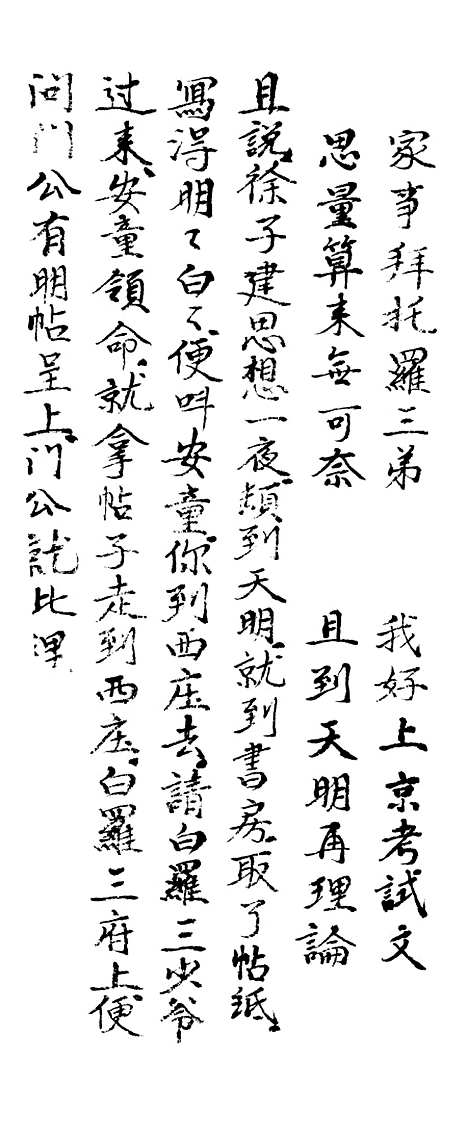 家事拜托羅三弟 我好上京考試文
思量算来無可奈 且到天明再理論
且說徐子建思想一夜頼到天明就到書房取了帖紙
寫淂明〻白〻便叫安童你到西庄去請白羅三少爷
过来安童領命就拿帖子走到西庄白羅三府上便
问门公有明帖呈上门公説比